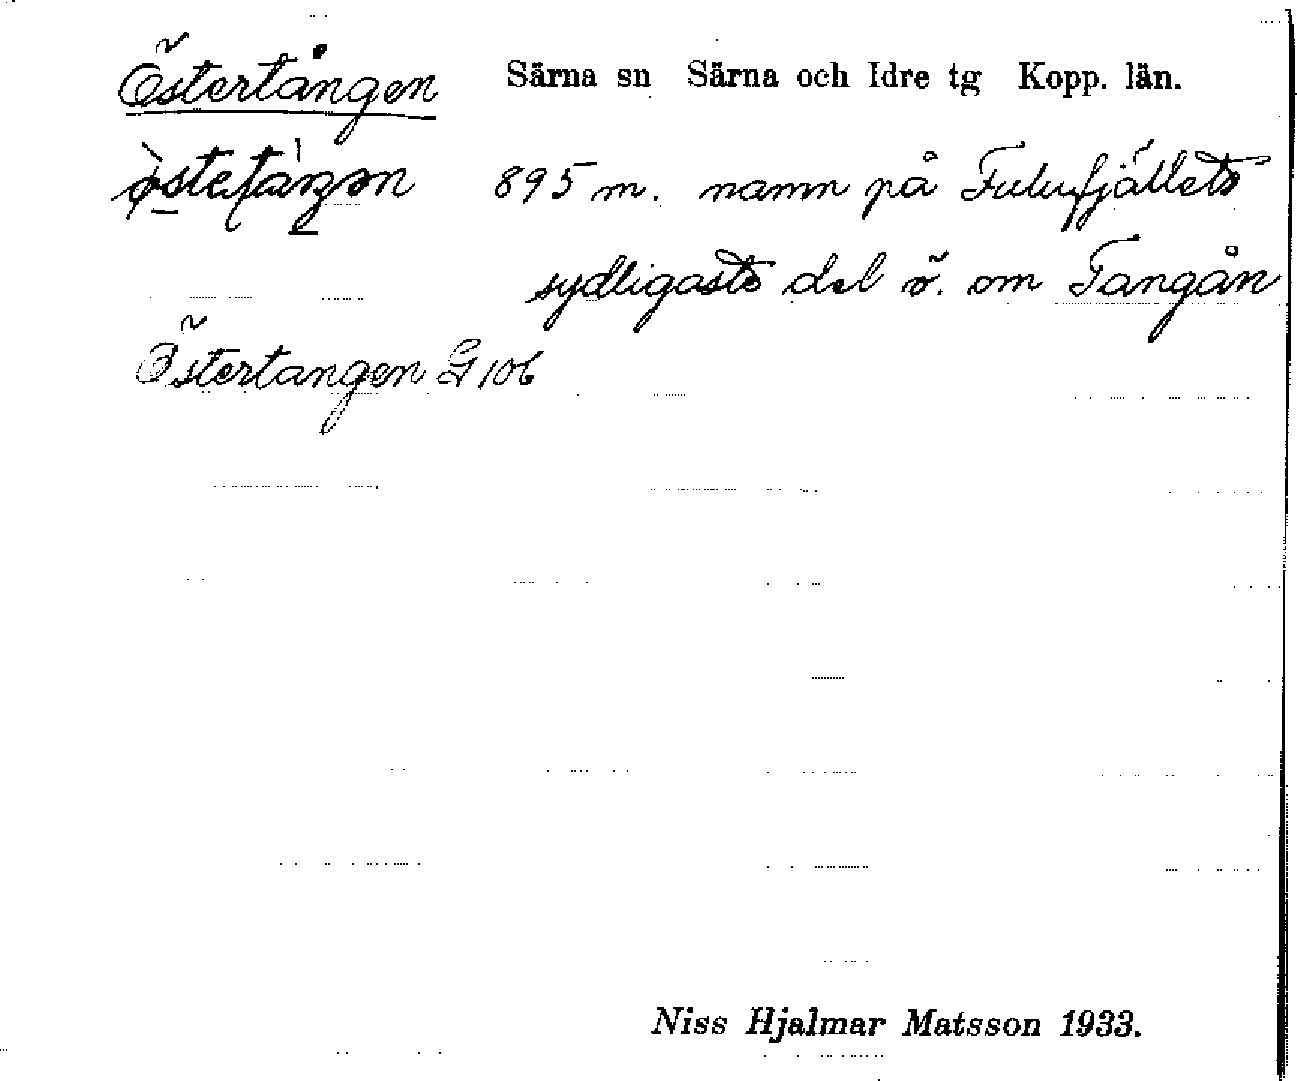 Östertången Särna sn Särna och Idre tg Kopp. län.
895 m. namn på Fulufjällets
sydligaste del ö. om Tangån
Östertangen G 106
Niss Hjalmar Matsson 1933.